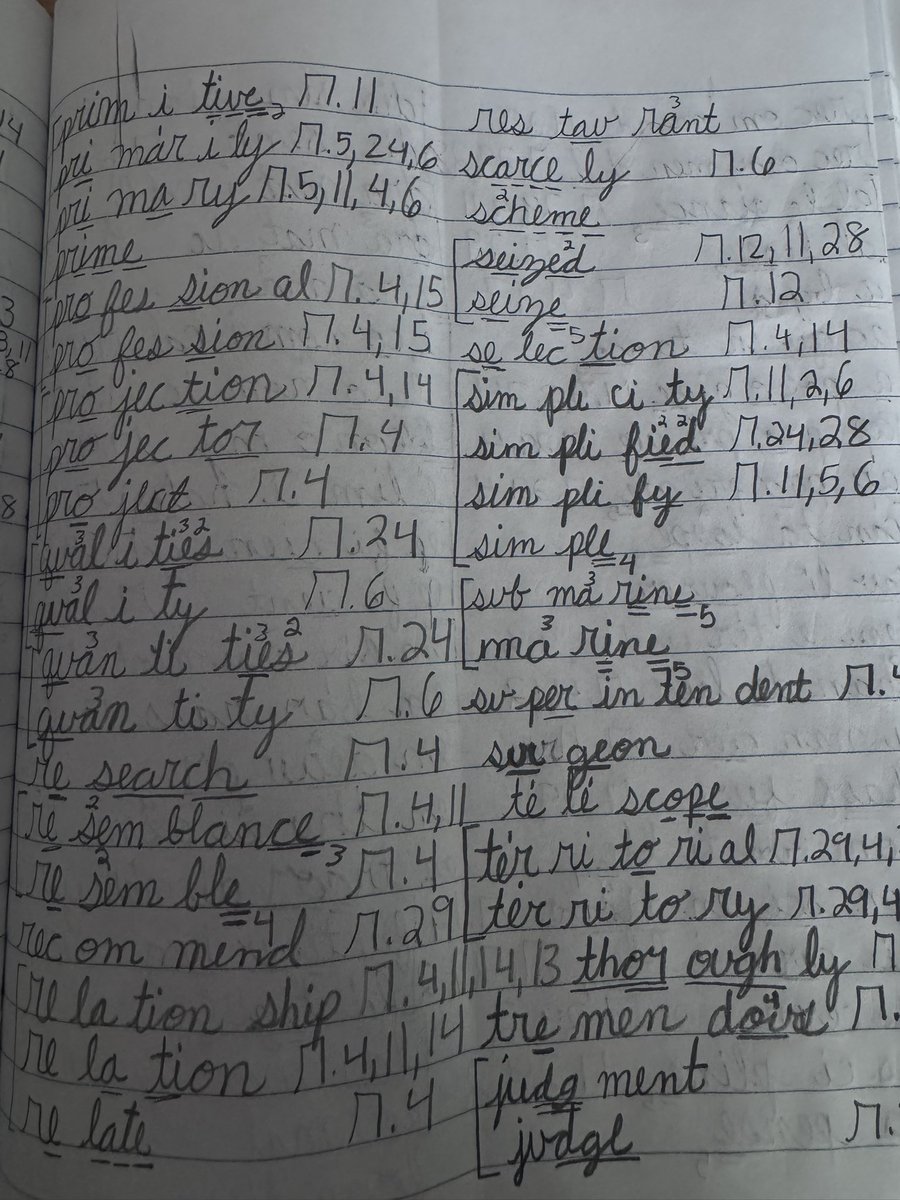 prim i tive₂ r.11
pri mar i ly r.5,24,6
pri ma ry r.5,11,4,6
prime
pro fes sion al r.4,15
pro fes sion r.4,15
pro jec tion r.4,14
pro jec tor r.4
pro ject r.4
qual³ i ties³ ² r.24
qual³ i ty r.6
quan³ ti ties³ ² r.24
quan³ ti ty r.6
re search r.4
re sem² blance₃ r.4,11
re sem² ble₄ r.4
rec om mend r.29
re la tion ship r.4,11,14,13
re la tion r.4,11,14
re late r.4
res tau rant³
scarce ly r.6
scheme²
seized² r.12,11,28
seize₅ r.12
se lec tion r.4,14
sim pli ci ty r.11,2,6
sim pli fied² ² r.24,28
sim pli fy r.11,5,6
sim ple₄
sub ma³ rine₅
ma³ rine₅
su per in ten dent r.4
sur geon
te le scope
ter ri to ri al r.29,4,
ter ri to ry r.29,4
thor ough ly r
tre men dous⁴ r.
judg ment
judge r.